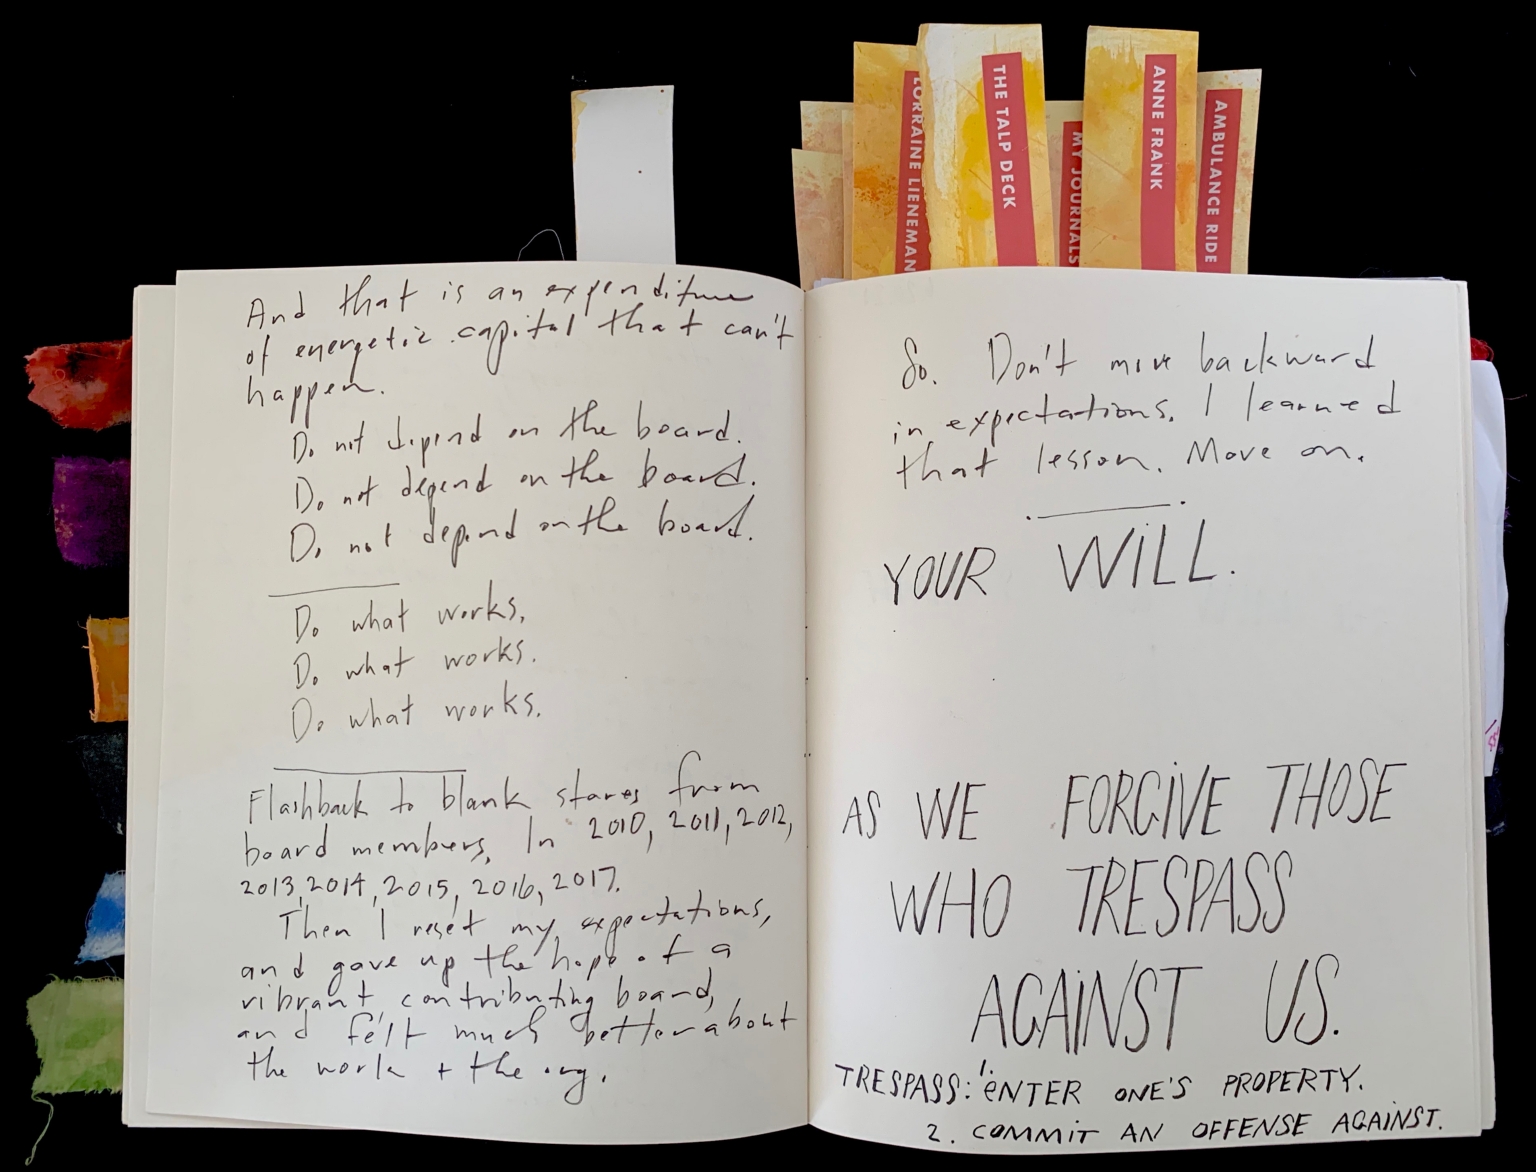 LORRAINE LIENEMAN
THE TALP DECK
MY JOURNALS
ANNE FRANK
AMBULANCE RIDE
And that is an expenditure
of energetic capital that can't
happen.
Do not depend on the board.
Do not depend on the board.
Do not depend on the board.
Do what works.
Do what works.
Do what works.
Flashback to blank stares from
board members. In 2010, 2011, 2012,
2013, 2014, 2015, 2016, 2017.
Then I reset my expectations,
and gave up the hope of a
vibrant, contributing board,
and felt much better about
the work + the org.
So. Don't move backward
in expectations. I learned
that lesson. Move on.
YOUR WILL.
AS WE FORGIVE THOSE
WHO TRESPASS
AGAINST US.
TRESPASS: 1. ENTER ONE'S PROPERTY.
2. COMMIT AN OFFENSE AGAINST.